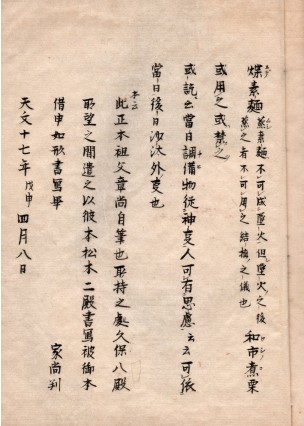 煠素麺 蒸素麺不可成堕火但堕火之後
蒸之者不可用之結構之儀也 和市煮栗
或用之或禁之
或説云當日調備物從神变人可有思慮云々可依
當日後日沙汰外支也
本云
此正本祖父章尚自筆也取持之處久保八殿
所望之間遣之以彼本松本二殿書寫被御本
借申如形書寫畢
天文十七年戊申四月八日 家尚判